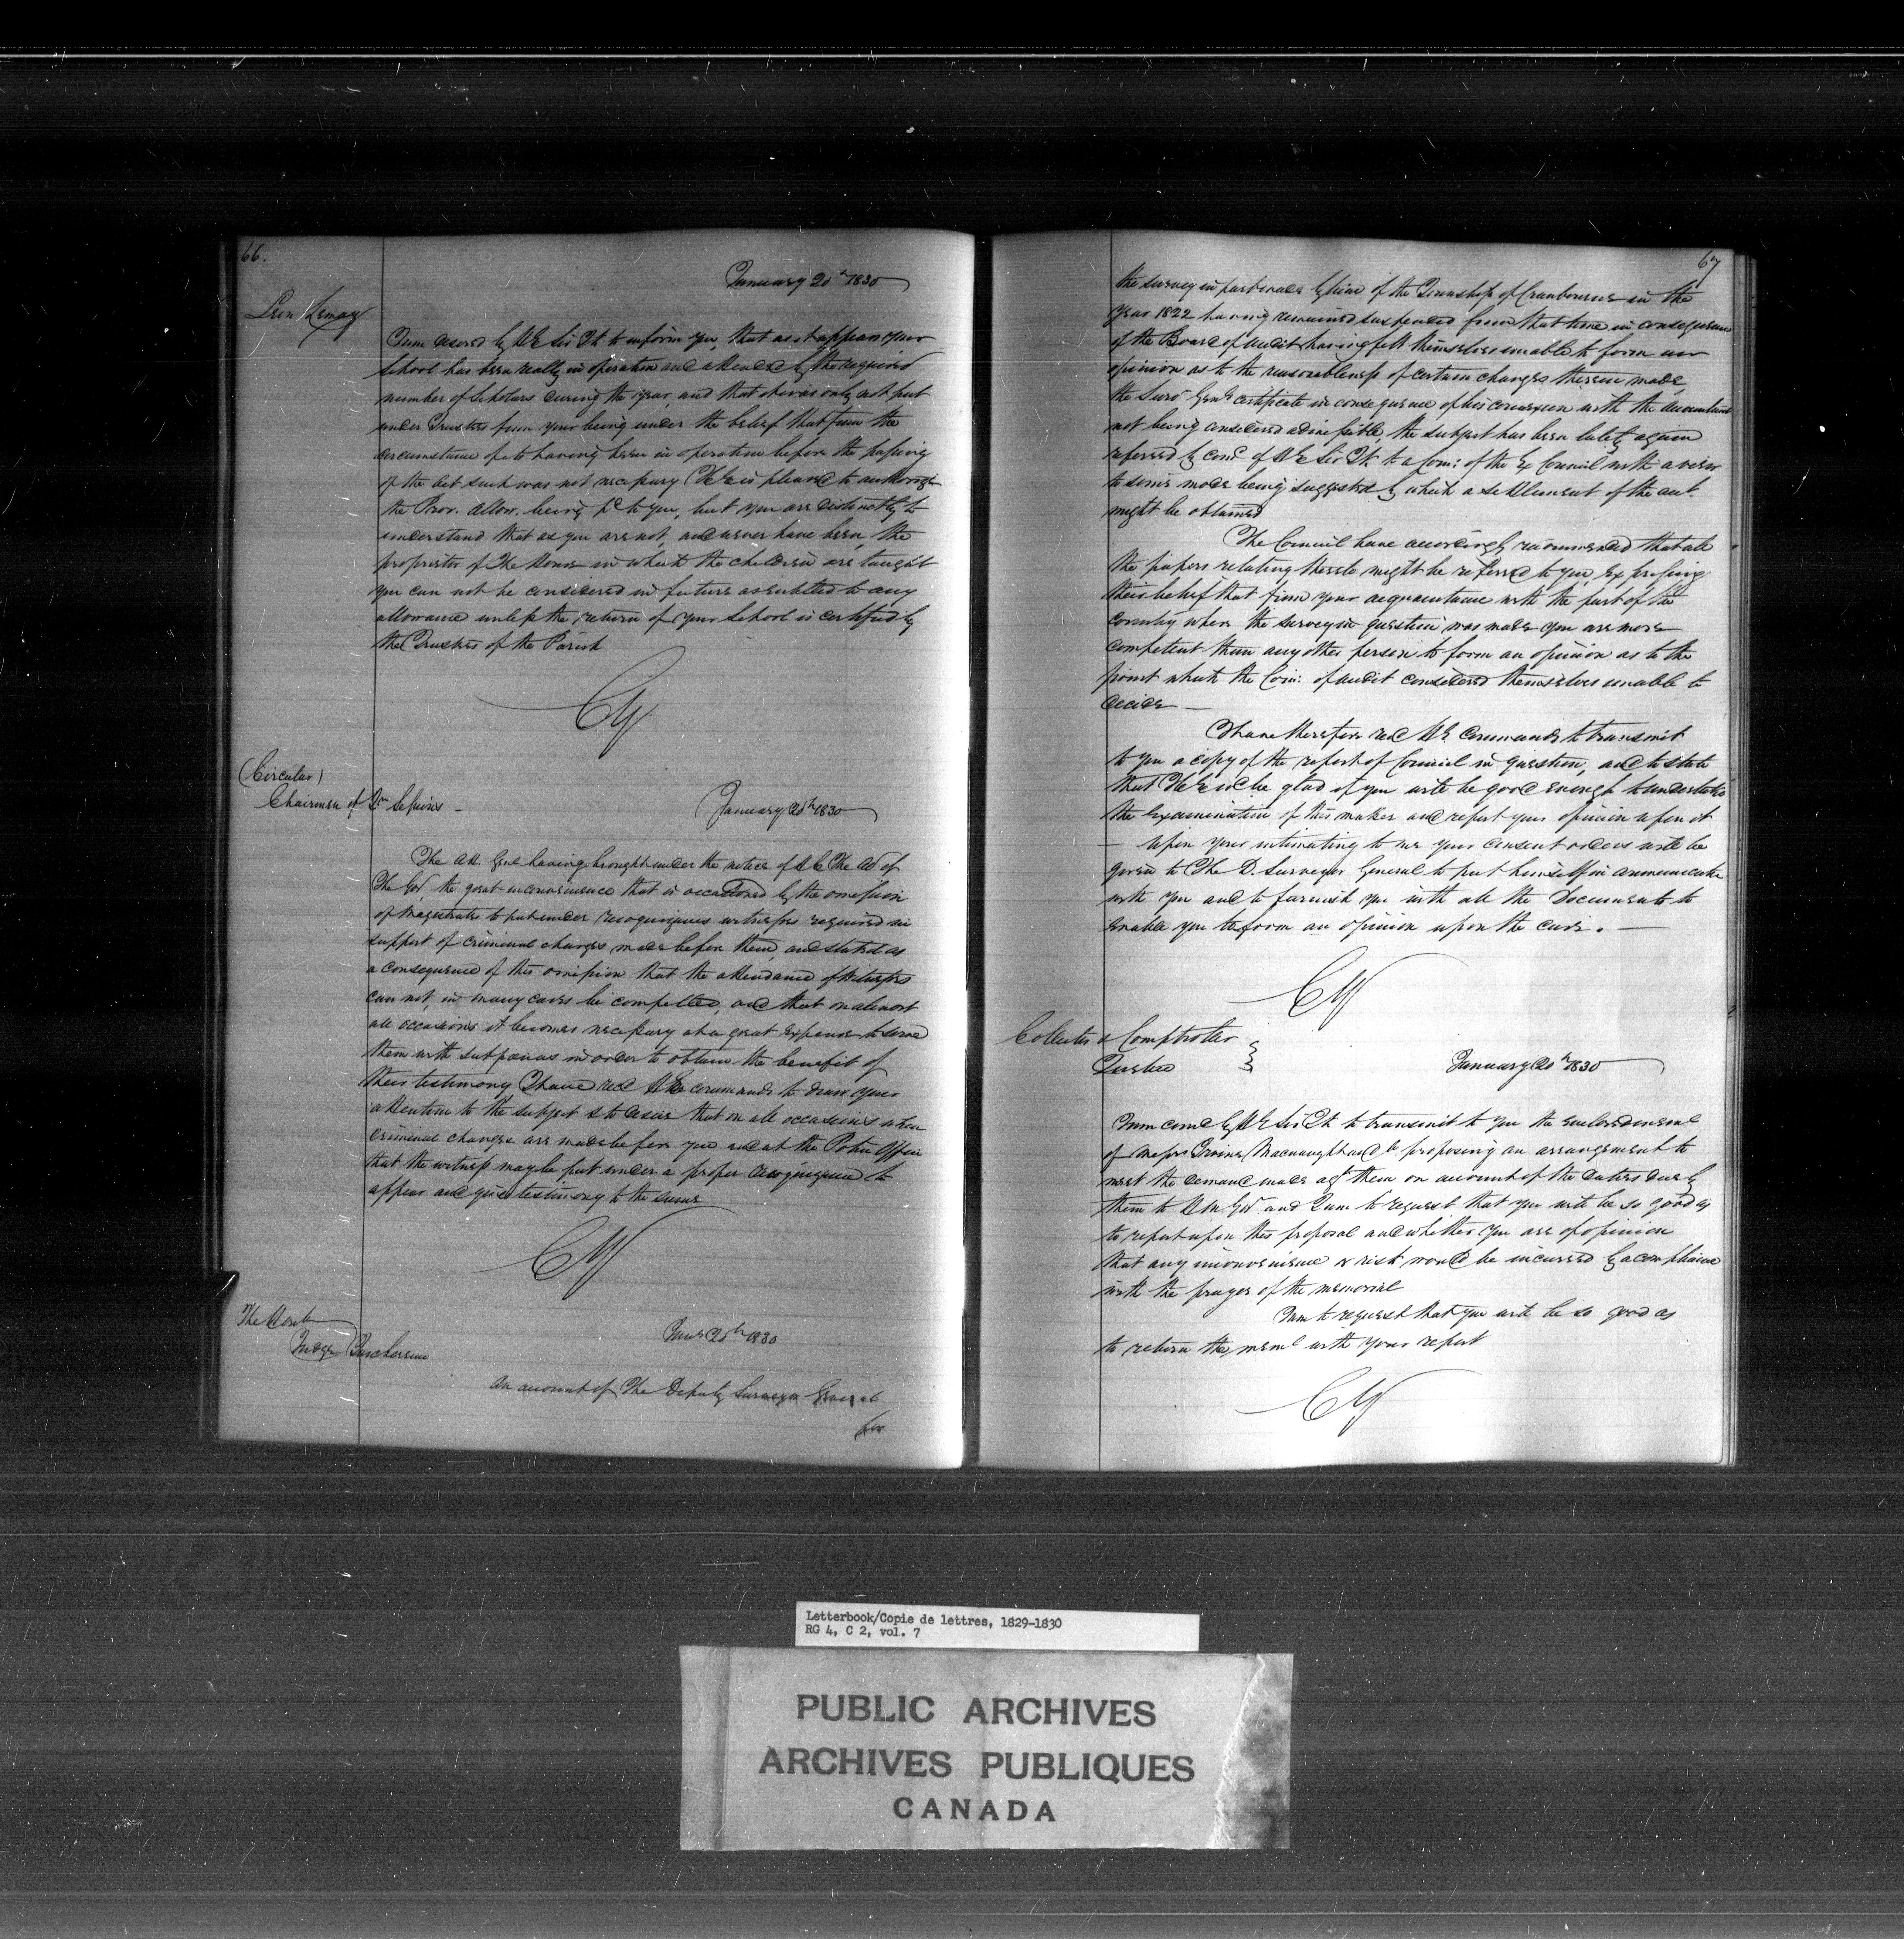 66.
January 20th 1830
Lemay
I am desired by H E Sir Jt to inform you, that as it appears your
School has been really in operation and attended by the required
number of Scholars during the year, and that it was only not put
under Trustees from your being under the belief that from the
circumstance of its having been in operation before the passing
of the Act such was not necessary (H E is pleased to authorize
the Prov. allow. being pd to you, but you are distinctly to
understand that as you are not, and never have been, the
proprietor of the House in which the children are taught
you can not be considered in future as entitled to any
allowance unless the return of your School is certified by
the Trustees of the Parish
CY
(Circular)
Chairmen of Qr Sessions
January 20th 1830
The Att. Genl having brought under the notice of H E The Ad of
The Govt the great inconvenience that is occasioned by the omission
of Magistrates to put under recognizances witnesses required in
support of criminal charges made before them, and stated as
a consequence of this omission that the attendance of Witnesses
can not, in many cases be compelled, and that on almost
all occasions it becomes necessary at a great expense to serve
them with subpoenas in order to obtain the benefit of
their testimony I have recd H Es commands to draw your
attention to the subject & to desire that on all occasions when
criminal charges are made before you and at the Police Office
that the witness may be put under a proper recognizance to
appear and give testimony to the same
CY
The Honble
Judge Taschereau
Jany 20th 1830
An account of The Deputy Surveyor General
for
67
the survey in part made by him of the Township of Cranbourne in the
year 1822 having remained suspended from that time in consequence
of the Board of Audit having felt themselves unable to form an
opinion as to the reasonableness of certain charges therein made,
the Survr Genls certificate in consequence of his connexion with the accountant
not being considered admissible, the subject has been lately again
referred by comd of H E Sir Jt. to a Com: of the Ex Council with a view
to some mode being suggested by which a settlement of the acct.
might be obtained
The Council have accordingly recommended that all
the papers relating thereto might be referred to you, expressing
their belief that from your acquaintance with the part of the
country where the survey in question was made you are more
competent than any other person to form an opinion as to the
point which the Com: of audit considered themselves unable to
decide —
I have therefore recd H E Commands to transmit
to you a copy of the report of Council in question, and to state
that H E wd be glad if you will be good enough to undertake
the examination of this matter and report your opinion upon it
— Upon your intimating to me your consent orders will be
given to The D. Surveyor General to put himself in communicatn
with you and to furnish you with all the Documents to
enable you to form an opinion upon the case. —
CY
Collector & Comptroller
Quebec
January 20th 1830
I am comd by H E Sir Jt to transmit to you the enclosed meml
of Messrs Irvine, Macnaught and Co proposing an arrangement to
meet the demand made agt them on account of the duties due by
them to H M Govt and I am to request that you will be so good as
to report upon this proposal and whether you are of opinion
that any inconvenience or risk would be incurred by a compliance
with the prayer of the memorial
I am to request that you will be so good as
to return the meml with your report
CY
Letterbook/Copie de lettres, 1829-1830
RG 4, C 2, vol. 7
PUBLIC ARCHIVES
ARCHIVES PUBLIQUES
CANADA